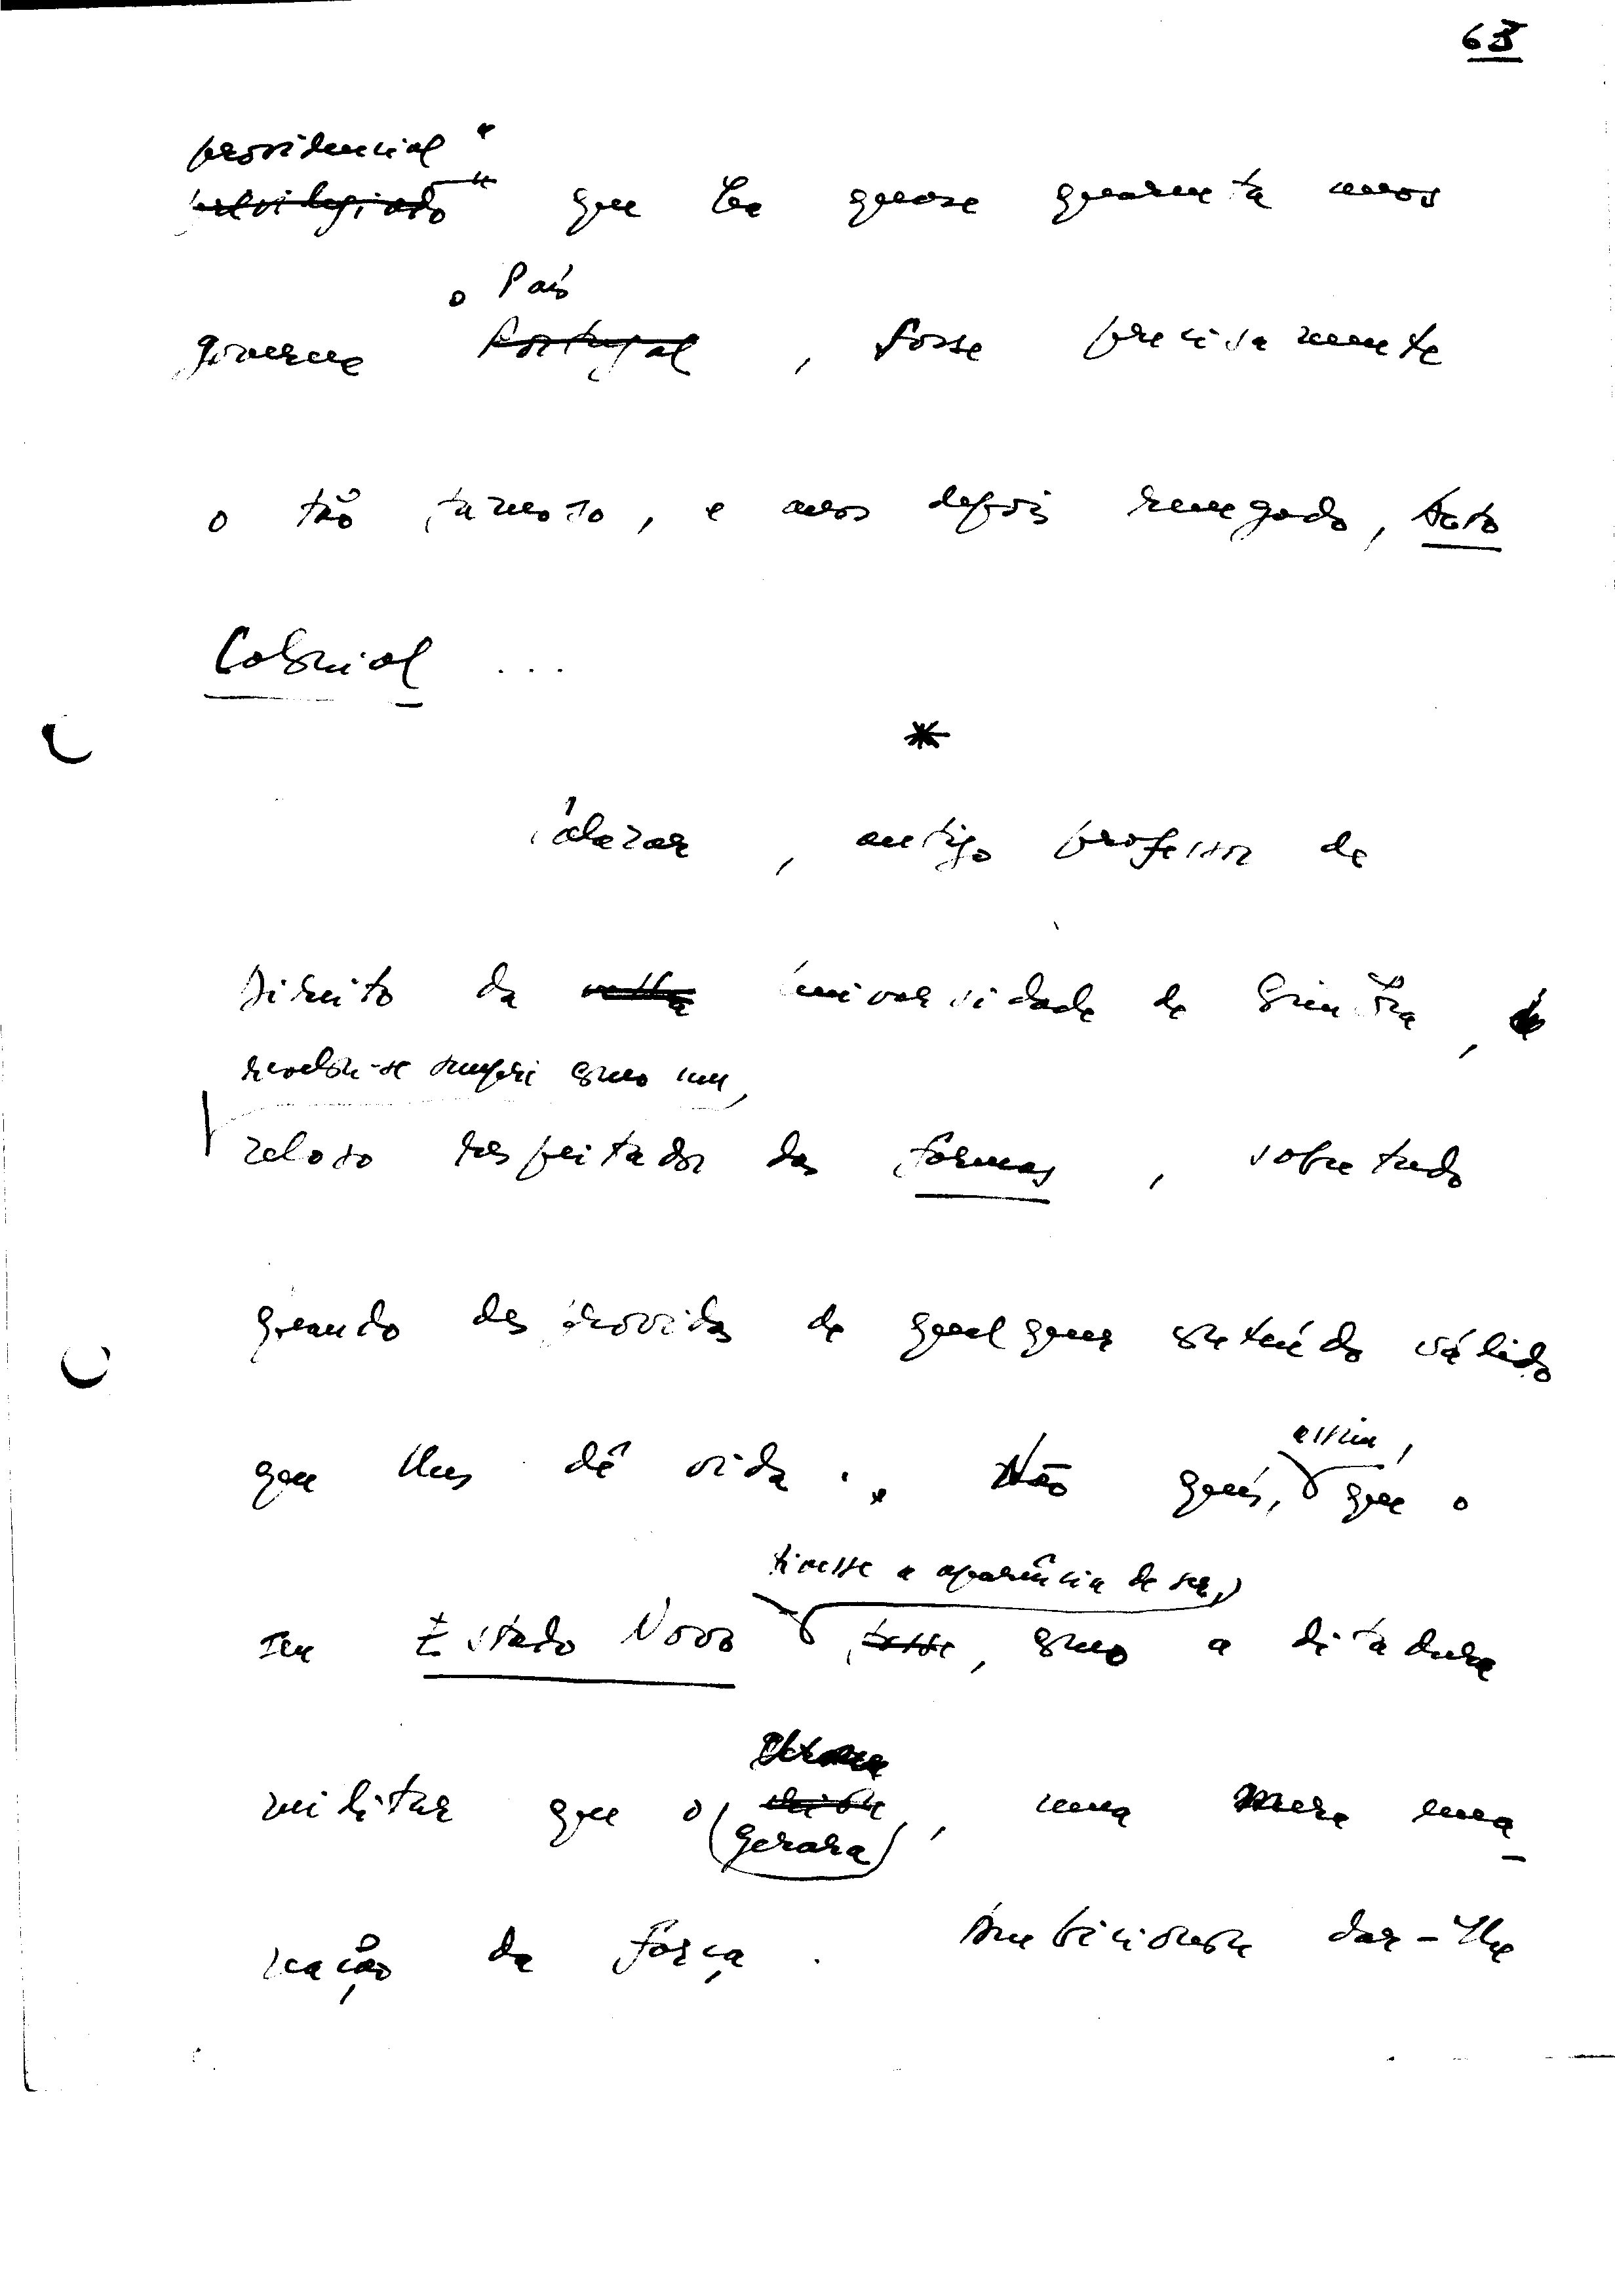 63
providencial"
privilegiado" que há quase quarenta anos
o País
governa Portugal, fosse precisamente
o tão famoso, e anos depois renegado, Acto
Colonial ...
*
Salazar, antigo professor de
Direito da velha Universidade de Coimbra,
revelou-se sempre como um,
zeloso respeitador das formas, sobretudo
quando desprovidas de qualquer conteúdo válido
que lhes dê vida. Não quis, que o
assim,
tivesse a aparência de ser,
seu Estado Novo fosse, como a ditadura
militar que o, uma mera ema-
gerara
nação da força. Ambicionou dar-lhe